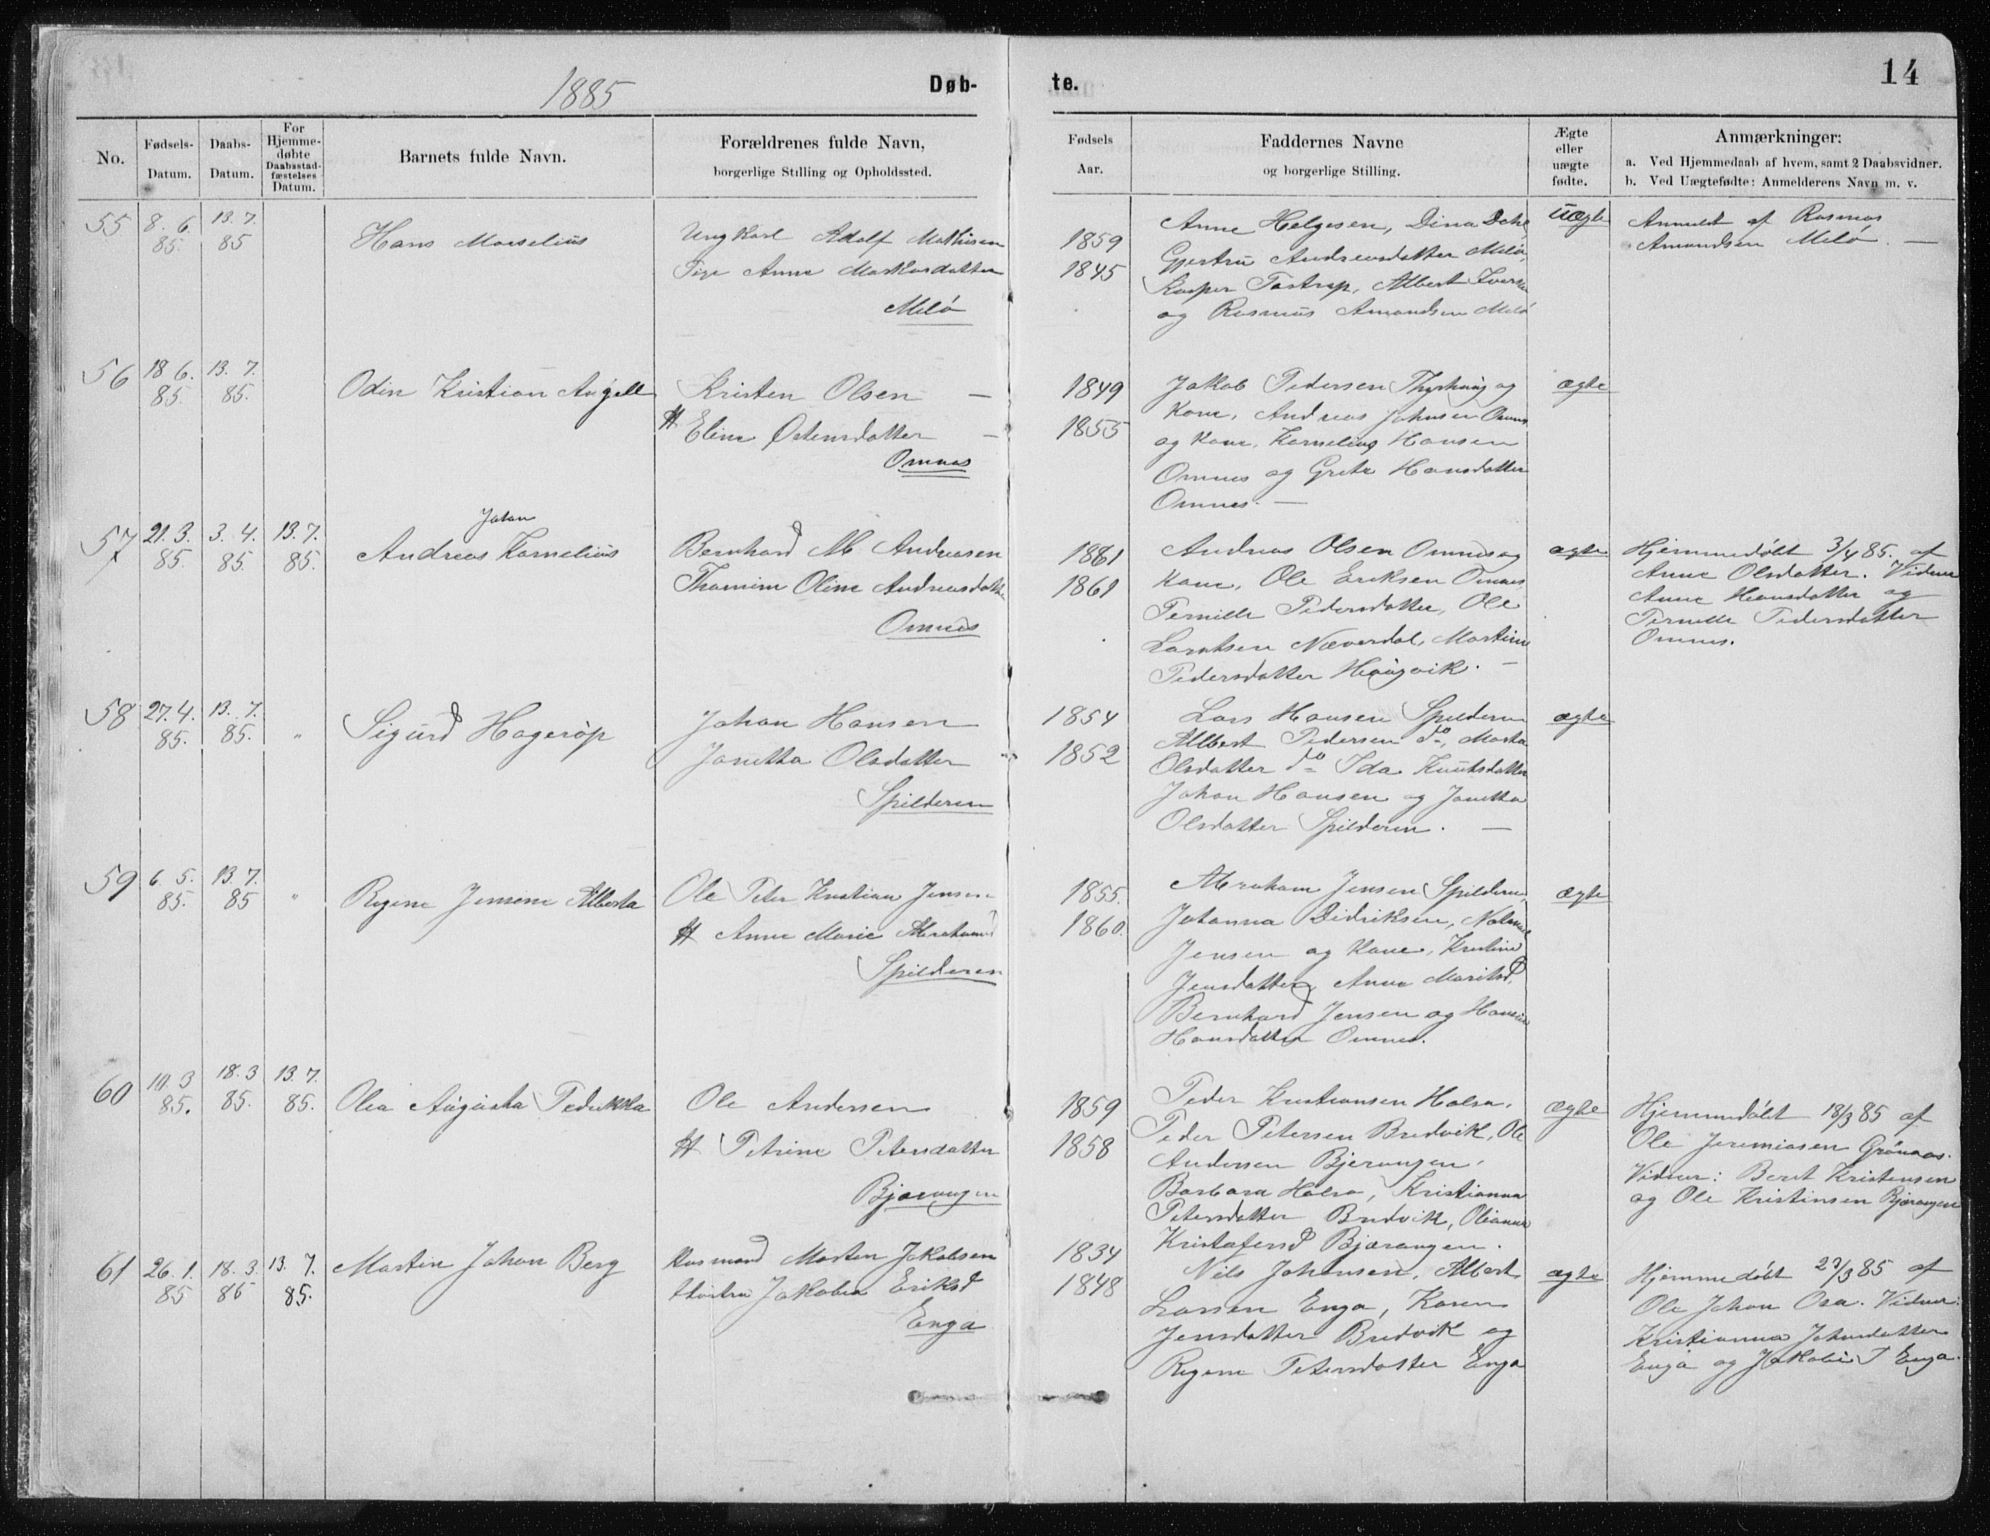 1885
Døb-
te.
14
No.
Fødsels-
Datum.
Daabs-
Datum.
For
Hjemme-
døbte
Daabsstad-
fæstelses
Datum.
Barnets fulde Navn.
Forældrenes fulde Navn,
borgerlige Stilling og Opholdssted.
Fødsels
Aar.
Faddernes Navne
og borgerlige Stilling.
Ægte
eller
uægte
fødte.
Anmærkninger:
a. Ved Hjemmedaab af hvem, samt 2 Daabsvidner.
b. Ved Uægtefødte: Anmelderens Navn m. v.
55 8. 6. 85 13. 7. 85
Hans Marselius
Ungkarl Adolf Mathisen
Pige Anne Markusdatter
Melø
1859
1845
Anne Helgesen, Dina
Gjertru Andreasdatter Melø,
Kasper Tostrup, Albert
og Rasmus Amundsen Melø
Uægte
Anmeldt af Rasmus
Amundsen Melø. —
56 18 6. 85. 13. 7. 85.
Odin Kristian Angell
Kristen Olsen —
H Eline Østensdatter —
Omnes
1849
1855
Jakob Pedersen og
Kone, Andreas Johnsen Omnes
og Kone, Kornelius Hansen
Omnes og Grete Hansdatter
Omnes. —
ægte
57 21. 3. 85. 3. 4. 85. 13. 7. 85.
Johan
Andreas Kornelius
Bernhard M Andreasen
Thomine Oline Andreasdatter
Omnes
1861
1861
Andreas Olsen Omnes og
Kone, Ole Eriksen Omnes
Pernille Pedersdatter, Ole
Larntsen Næverdal, Martine
Pedersdatter Haugvik. —
ægte
Hjemmedøbt 3/4 85. af
Anne Olsdatter. Vidner
Anne Hansdatter og
Pernille Pedersdatter
Omnes.
58 27. 4. 85. 13. 7. 85. "
Sigurd Hagerup
Johan Hansen
Janetta Olsdatter
Spilderen
1854
1852
Lars Hansen Spilderen
Albert Pedersen do, Marta
Olsdatter do Ida Knutsdatter
Johan Hansen og Janetta
Olsdatter Spilderen. —
ægte
59 6. 5. 85. 13. 7. 85 "
Regine Jensine Alberta
Ole Peter Kristian Jensen
H Anne Marie Abrahamsd
Spilderen
1855.
1860.
Abraham Jensen Spilderen,
Johanna Didriksen,
Jensen og Kone, Kristine
Jensdatter, Anna
Bernhard Jensen og
Hansdatter Omnes.
ægte
60 10. 3 85. 18. 3 85. 13. 7. 85.
Olea Augusta Pedrikka
Ole Andersen
H Petrine Petersdatter
Bjærangen
1859
1858
Peder Kristiansen Halsa,
Peder Petersen Bredvik, Ole
Andersen Bjerangen,
Barbara Halsa, Kristianna
Petersdatter Bredvik, Oleanna
Kristofersd Bjærangen.
ægte
Hjemmedøbt 18/3 85 af
Ole Jeremiasen Grønaas.
Vidner: Berit Kristensen
og Ole Kristinsen Bjærangen
61 26. 1. 85 18. 3 85 13. 7. 85.
Martin Johan Berg
Husmand Morten Jakobsen
Hustru Jakobia Eriksd
Enga
1834
1848
Nils Johansen, Albert
Larsen Enga, Karen
Jensdatter Bredvik og
Regine Petersdatter Enga
ægte
Hjemmedøbt 22/3 85 af
Ole Johan Osa. Vidner:
Kristianna Johnsdatter
Enga og Jakobia Enga.